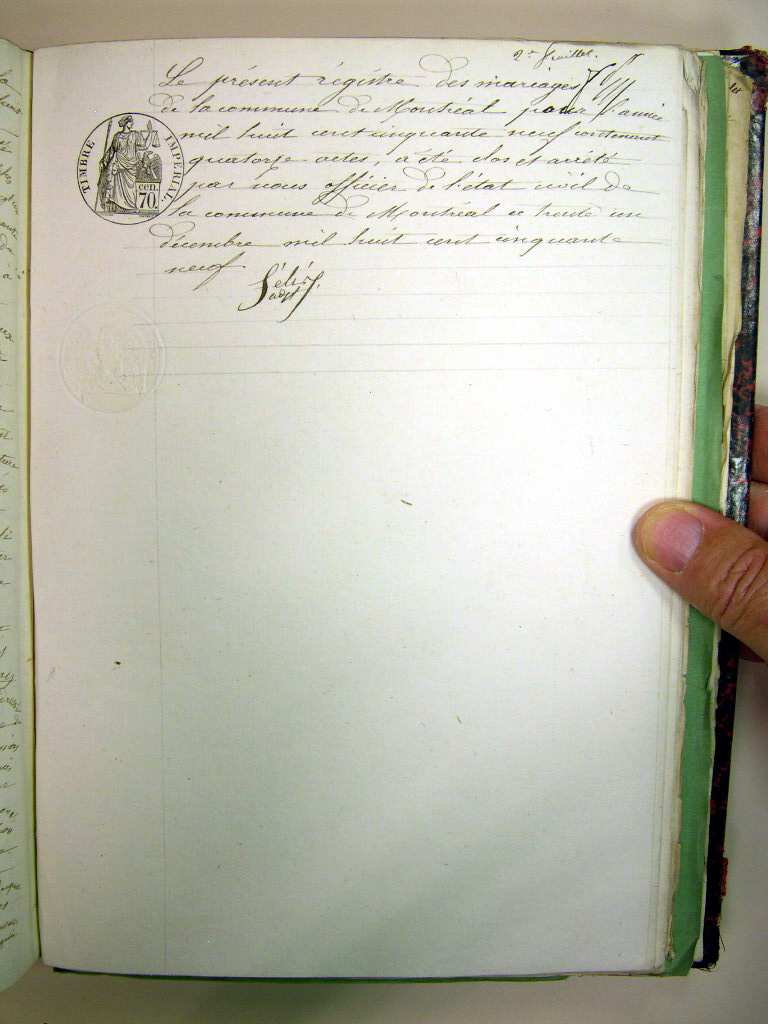 feuillet.
Le présent régistre des mariages
de la commune de Montréal pour l'année
mil huit cent cinquante neuf contenant
quatorze actes, a été clos et arrêté
par nous officier de l'état civil de
la commune de Montréal ce trente un
décembre mil huit cent cinquante
neuf.
adjt
TIMBRE IMPERIAL.
cen.
70.